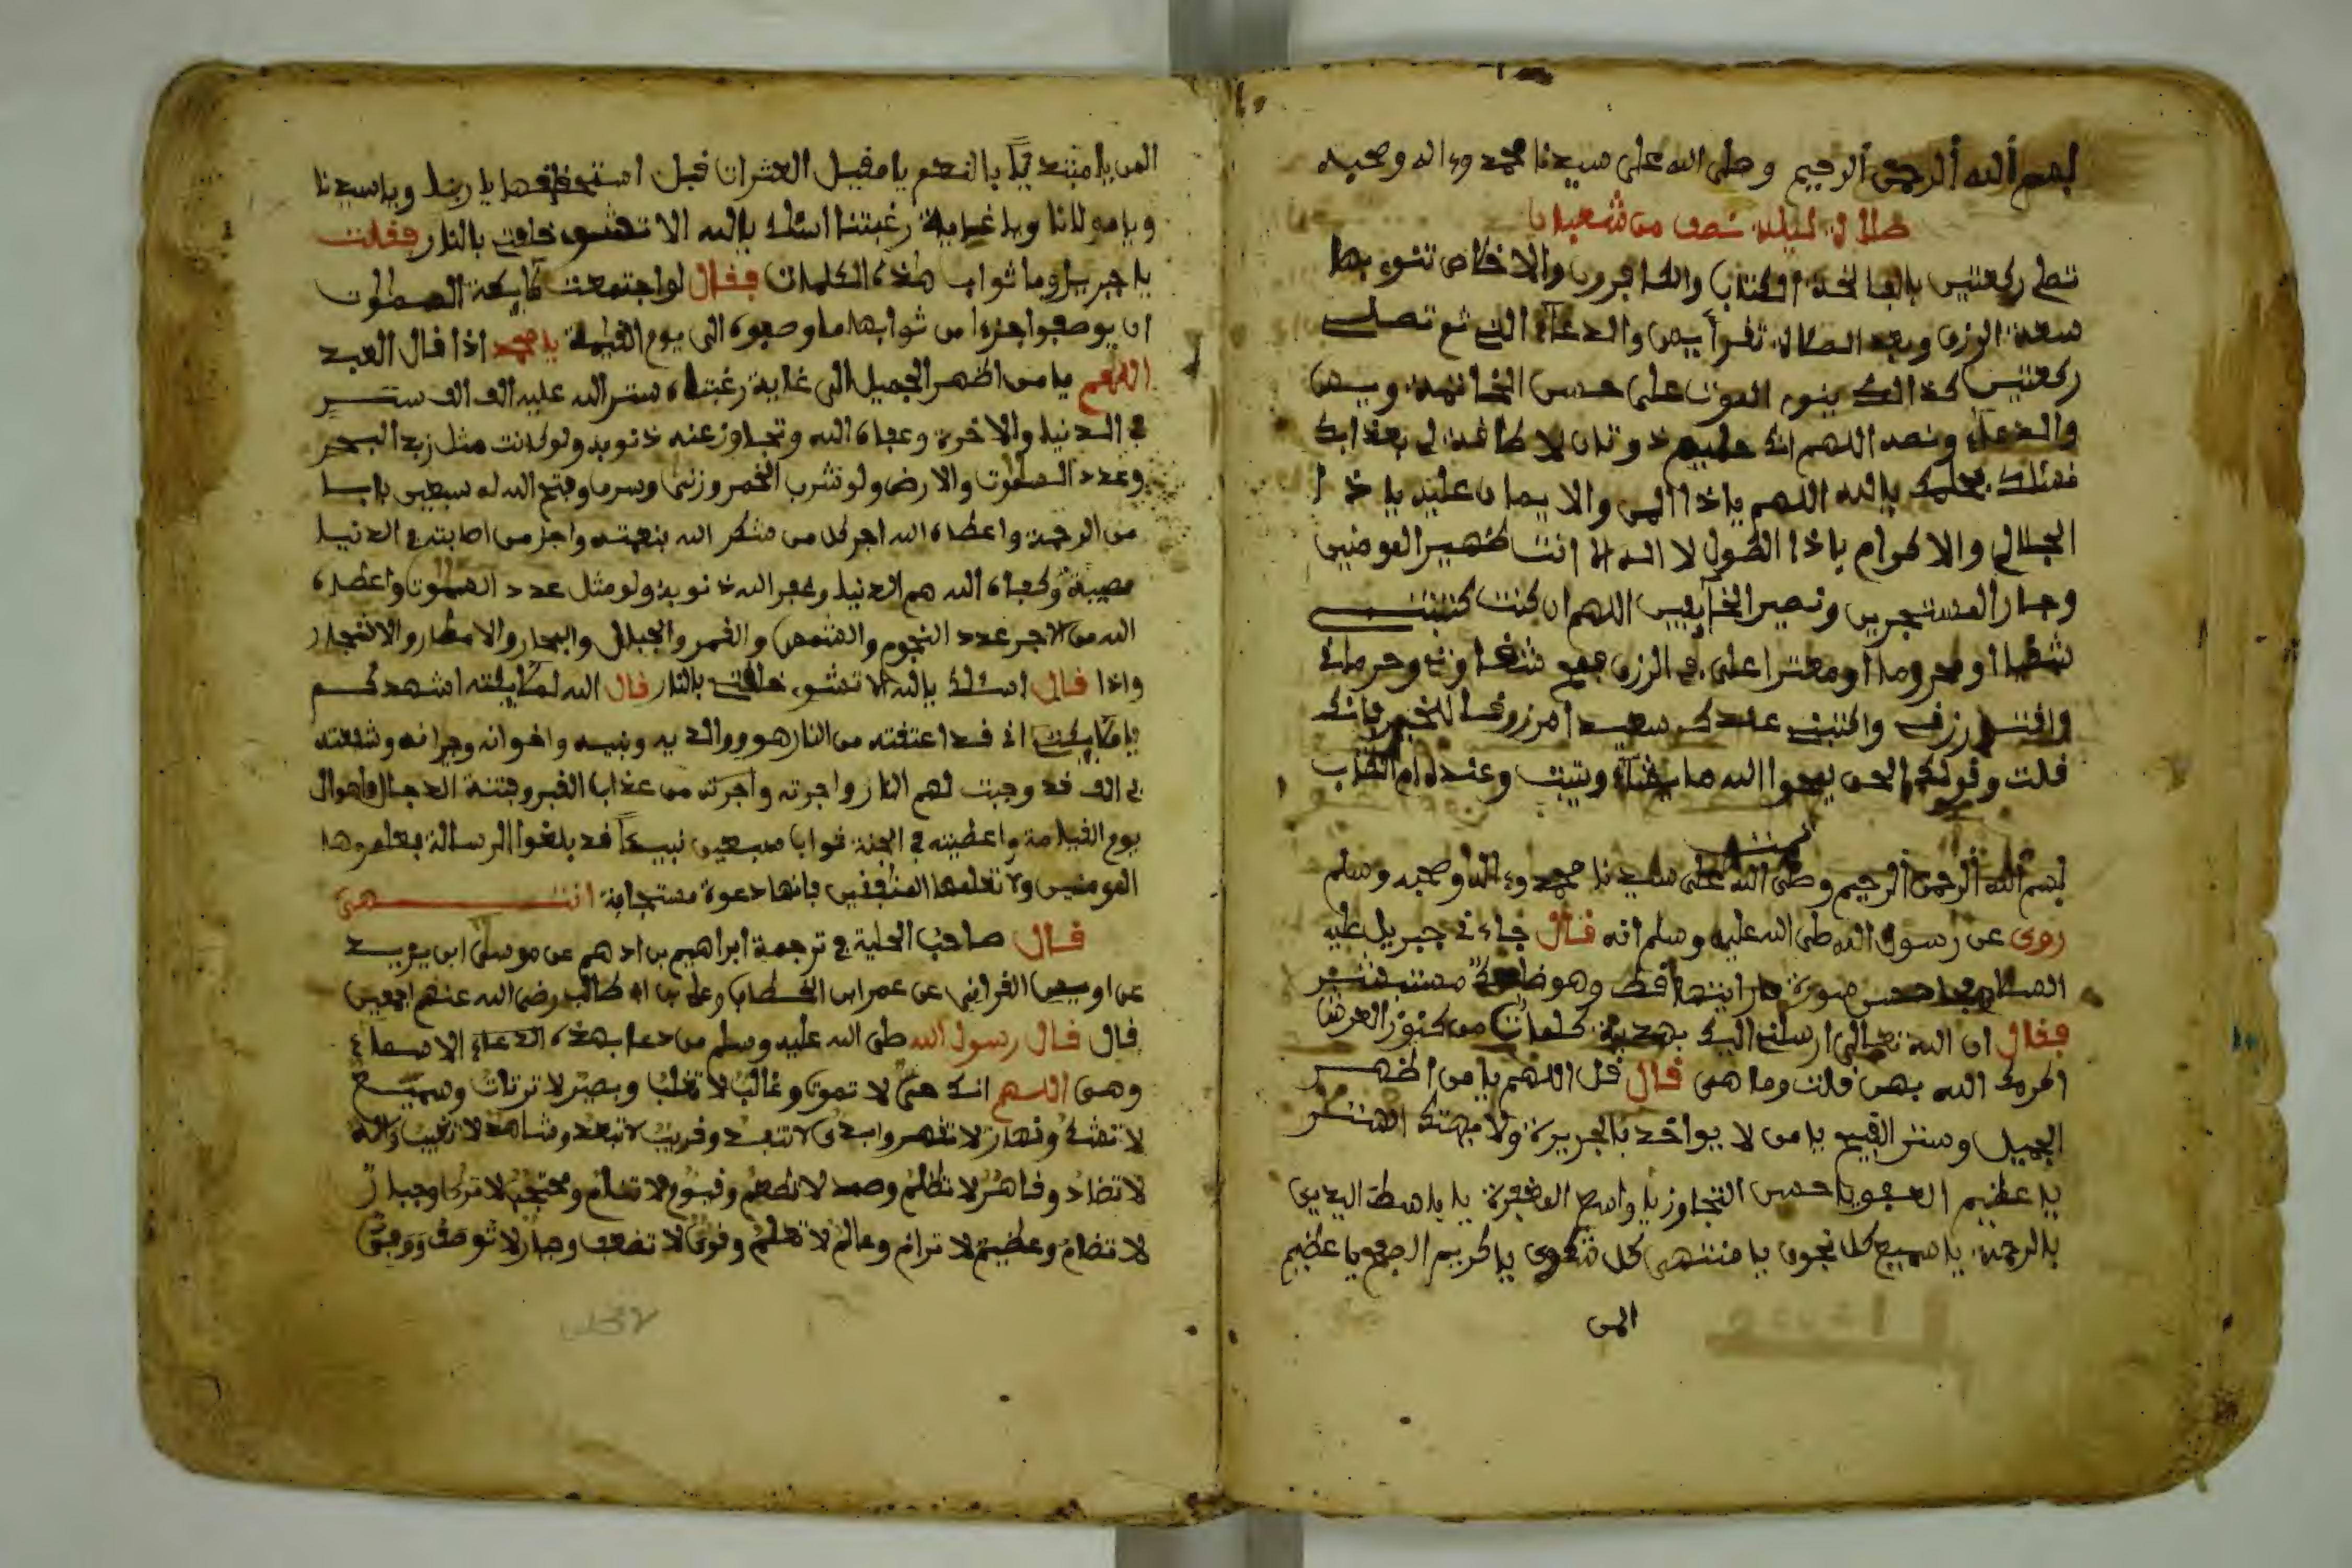 بسم الله الرحمن الرحيم وصلى الله على سيدنا محمد وءاله وصحبه
صلاة ليلة نصف من شعبان
تصل ركعتين بالفاتحة الكتاب والكافرون والاخلاص تنوي بها
سعة الرزق وبعد الصلاة تقرأ يس والدعاء الت ثم تصلى
ركعتين كذالك ينوى الموت على حسن الخاتمة ويس
والدعاء ونصه اللهم انك حليم ذو تان لا طاقة لى بعذابك
بحلمك يالله اللهم ياذا المن والا يمان عليه ياذا
الجلال والاكرام ياذا الطول لا اله الا انت ظهير المومنين
وجار المستجرين ونصير الخآيفين اللهم ان كنت كتبتنى
شقيا او محروما او مقترا على فى الرزق فامح شقاوتى وحرمانى
رزقى واكتبنى عندك سعيدا مرزوقا للخير فانك
قلت وقولك الحق يمحوا الله ما يشآء ويثبت وعنده ام الكتاب
بسم الله الرحمن الرحيم وصلى الله على سيدنا محمد وءاله وصحبه وسلم
روى عن رسول الله صلى الله عليه وسلم انه قال جاءنى جبريل عليه
السلام فى احسن صورة ما رايتها قط وهو ضاحك مستبشر
فقال ان الله تعالى ارسلنى اليك بهدية كلمات من كنوز العرش
اكرمك الله بهن قلت وما هى قال قل اللهم يا من اظهر
الجميل وستر القبيح يا من لا يواخذ بالجريرة ولا يهتك الستر
يا عظيم العفو يا حسن التجاوز يا واسع المغفرة يا باسط اليدين
بالرحمة يا سميع كل نجوى يا منتهى كل شكوى يا كريم الصفح يا عظيم
المن
المن يا مبتديا بالنعم يا مقيل العثرات قبل استحقاقها يا ربنا ويا سيدنا
ويا مولانا ويا غاية رغبتنا اسئلك يالله الا تشوى خلقى بالنار فقلت
يا جبريل وما ثواب هذه الكلمات فقال لو اجتمعت ملايكة السموات
ان يوصفوا جزءا من ثوابها ما وصفوه الى يوم القيمة يا محمد اذا قال العبد
اللهم يا من اظهر الجميل الى غاية رغبتاه ستر الله عليه الف الف ستر
فى الدنيا والاخرة وعفاه الله وتجاوز عنه ذنوبه ولو كانت مثل زبد البحر
وعدد السموت والارض ولو شرب الخمر وزنى وسرق وفتح الله له سبعين بابا
من الرحمة واعطاه الله اجر كل من شكر الله بنعمته واجر من اصابته فى الدنيا
مصيبة وكفاه الله هم الدنيا وغفر الله ذنوبه ولو مثل عدد السموت واعطاه
الله من الاجر عدد النجوم والشمس والقمر والجبال والبحار والامطار والاشجار
واذا قال اسئلك يالله الا تشوى خلقى بالنار قال الله لملايكته اشهدكم
يا ملايكتى انى قد اعتقته من النار هو ووالديه وبنيه واخوانه وجرانه وشفعته
فى الف قد وجبت لهم النار واجرته واجرته من عذاب القبر وفتنة الدجال واهوال
يوم القيامة واعطيته فى الجنة ثواب سبعين نبيئا قد بلغوا الرسالة فعلموها
المومنين ولا تعلمها المنافقين فانها دعوة مستجابة انتهى
قال صاحب الحلية فى ترجمة ابراهيم بن ادهم عن موسى ابن يزيد
عن اويس القرانى عن عمر ابن الخطاب وعلى بن ابى طالب رضى الله عنهم اجمعين
قال قال رسول الله صلى الله عليه وسلم من دعا بهذه الدعاء الاسماء
وهى اللهم انك حى لا تموت وغالب لا تغلب وبصير لا ترتاب وسميع
لا تشك وقهار لا تقهر وابدى لا تنفد وقريب لا تبعد وشاهد لا تغيب واله
لا تضاد وقاهر لا تظلم وصمد لا تطعم وقيوم لا تنام ومحتجب لا ترى وجبار
لا تضام وعظيم لا ترام وعالم لا تعلم وقوى لا تضعف وجبار لا توصف ووفى